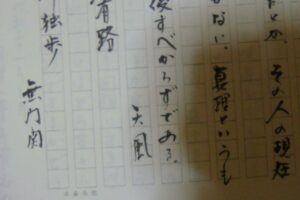 とか、その人の現在
ない。真理というも
すべからずである。
天風
有路
独歩
無門関